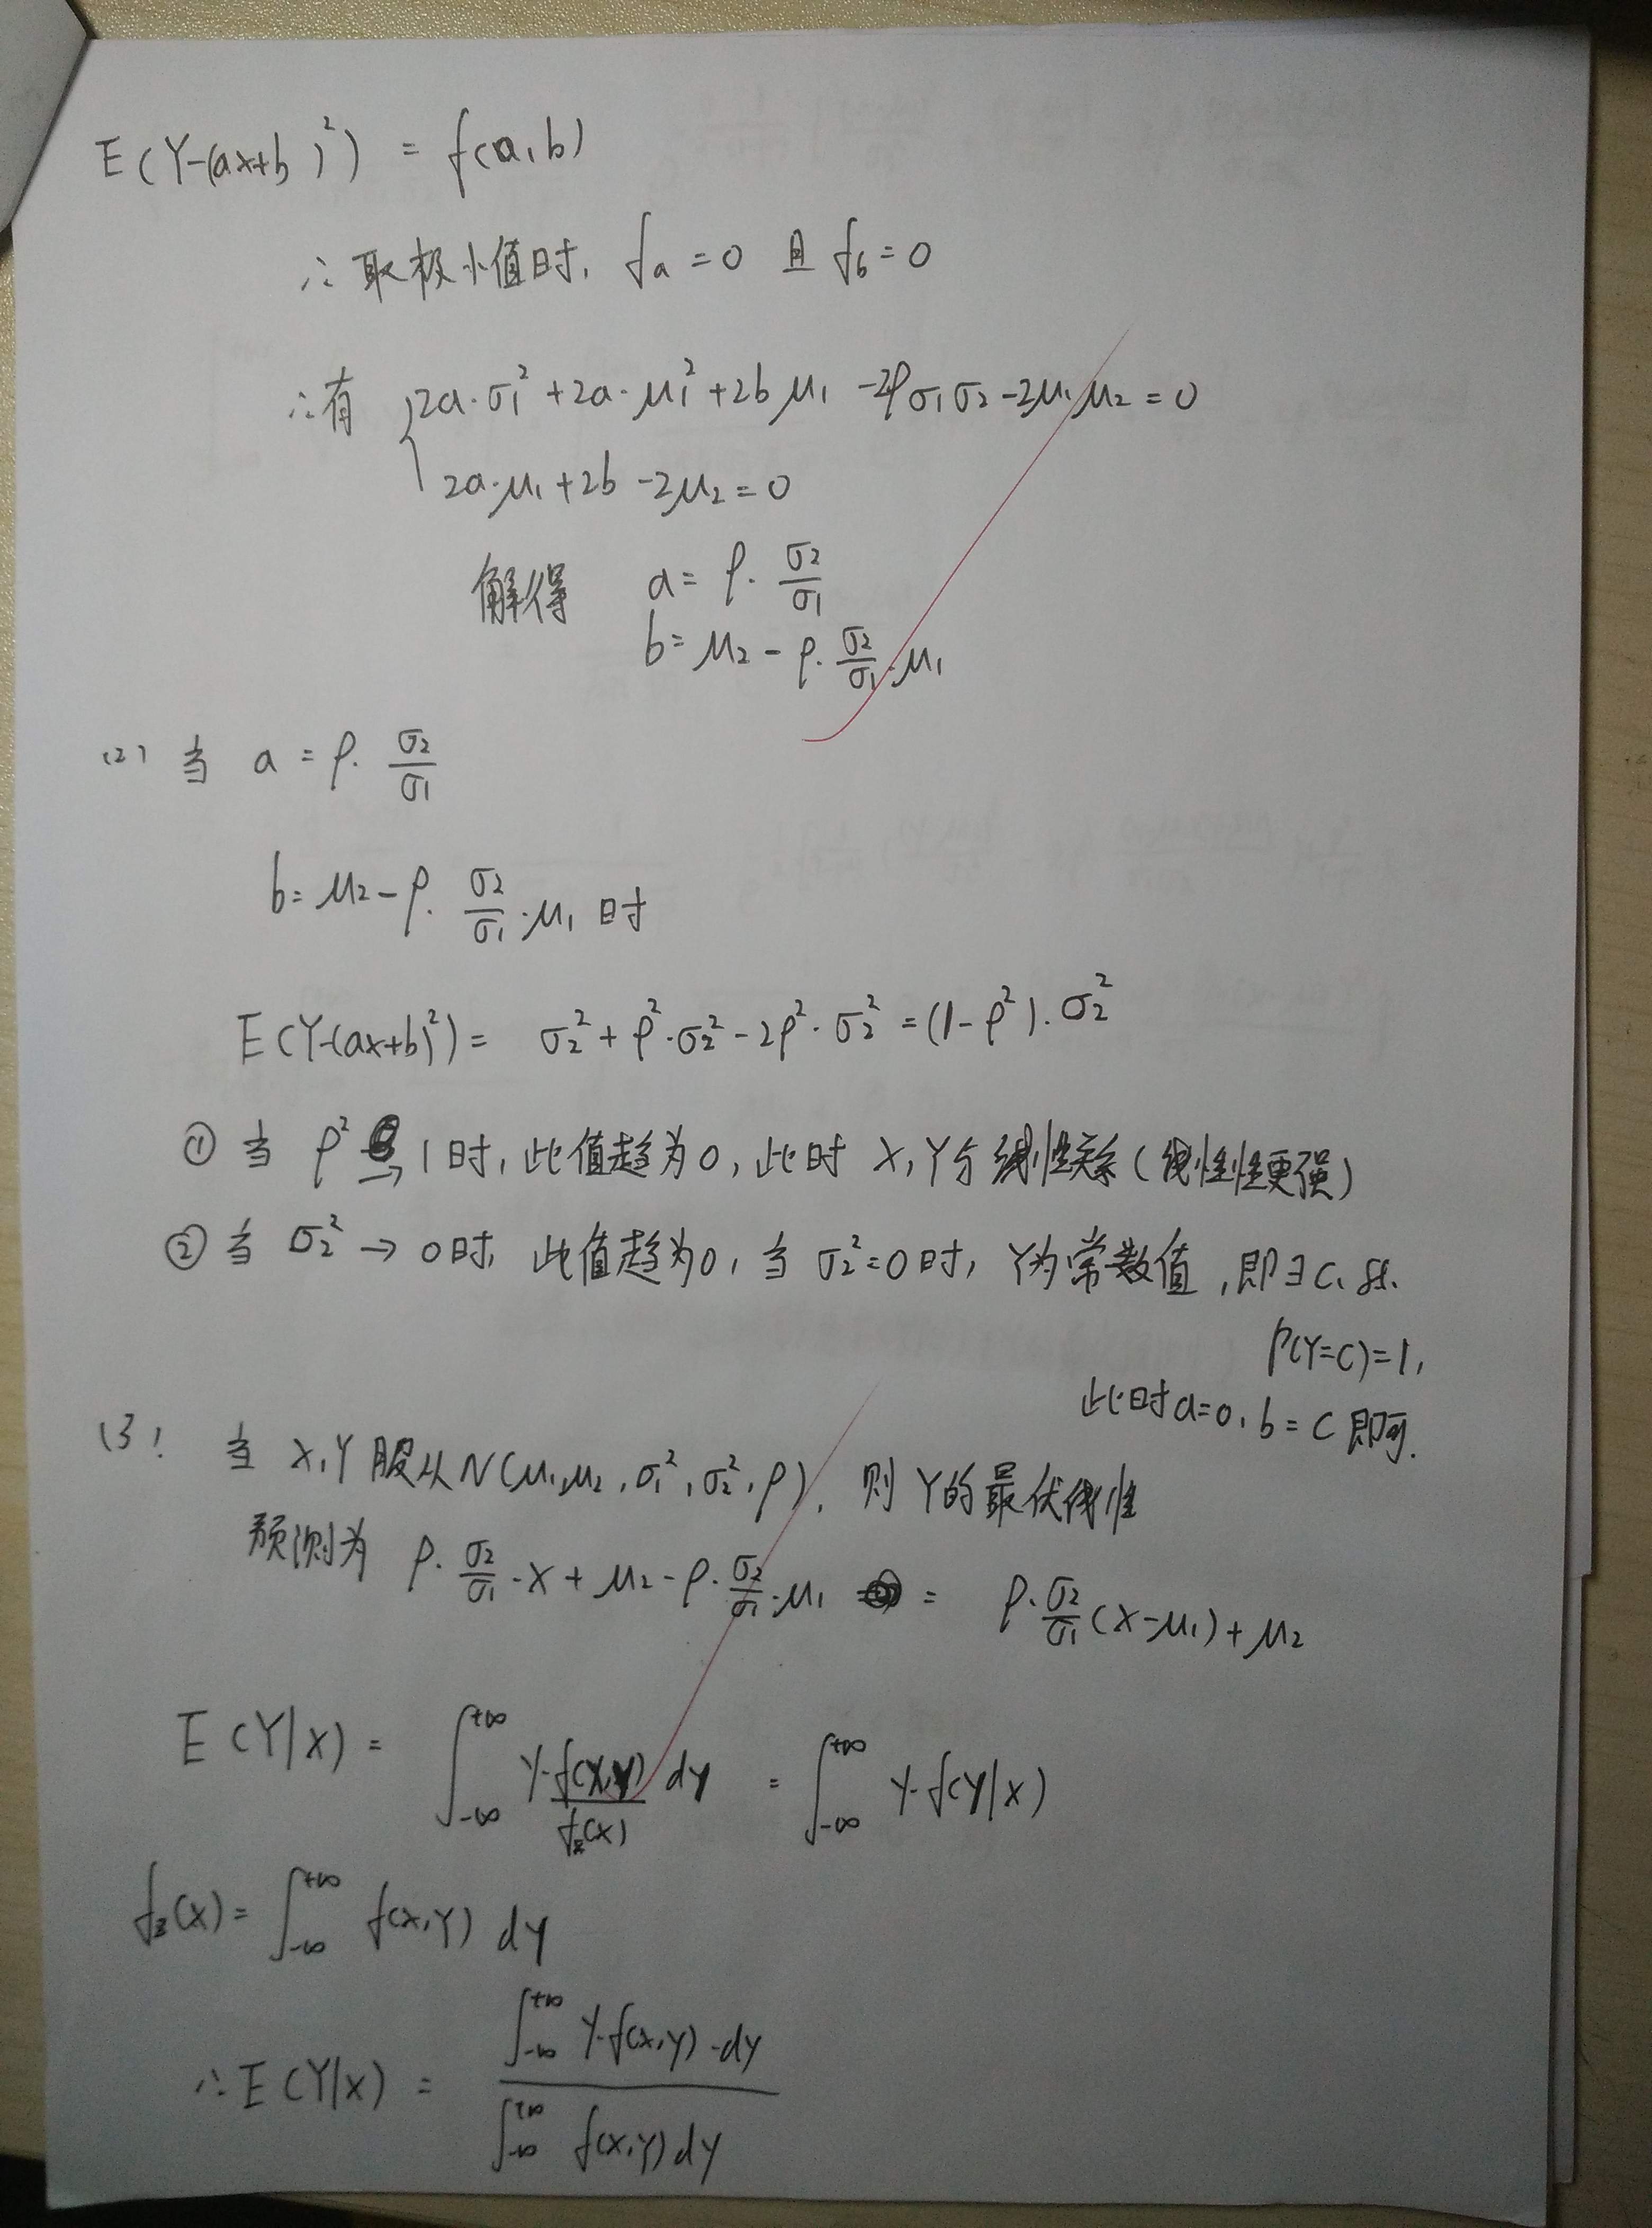 E(Y-(ax+b)²) = f(a,b)
∴取极小值时, fa=0 且 fb=0
∴有 { 2a·σ₁²+2a·μ₁²+2bμ₁-2ρσ₁σ₂-2μ₁μ₂=0
2a·μ₁+2b-2μ₂=0
解得 a=ρ·σ₂/σ₁
b=μ₂-ρ·σ₂/σ₁·μ₁
(2) 当 a=ρ·σ₂/σ₁
b=μ₂-ρ·σ₂/σ₁·μ₁时
E(Y-(ax+b)²)= σ₂²+ρ²·σ₂²-2ρ²·σ₂²=(1-ρ²)·σ₂²
① 当 ρ²→1时, 此值趋为0, 此时 X,Y 线性关系(线性性更强)
② 当 σ₂²→0时, 此值趋为0, 当 σ₂²=0时, Y为常数值, 即∃C, s.t.
P(Y=C)=1,
此时a=0, b=C即可.
(3) 当 X,Y服从N(μ₁,μ₂,σ₁²,σ₂²,ρ), 则Y的最优线性
预测为 ρ·σ₂/σ₁·X+μ₂-ρ·σ₂/σ₁·μ₁ = ρ·σ₂/σ₁(X-μ₁)+μ₂
E(Y|X)= ∫_{-∞}^{+∞} y·f(x,y)/f₂(x) dy = ∫_{-∞}^{+∞} y·f(y|x)
f₂(x)= ∫_{-∞}^{+∞} f(x,y) dy
∴E(Y|X)= ∫_{-∞}^{+∞} y·f(x,y)·dy / ∫_{-∞}^{+∞} f(x,y)dy